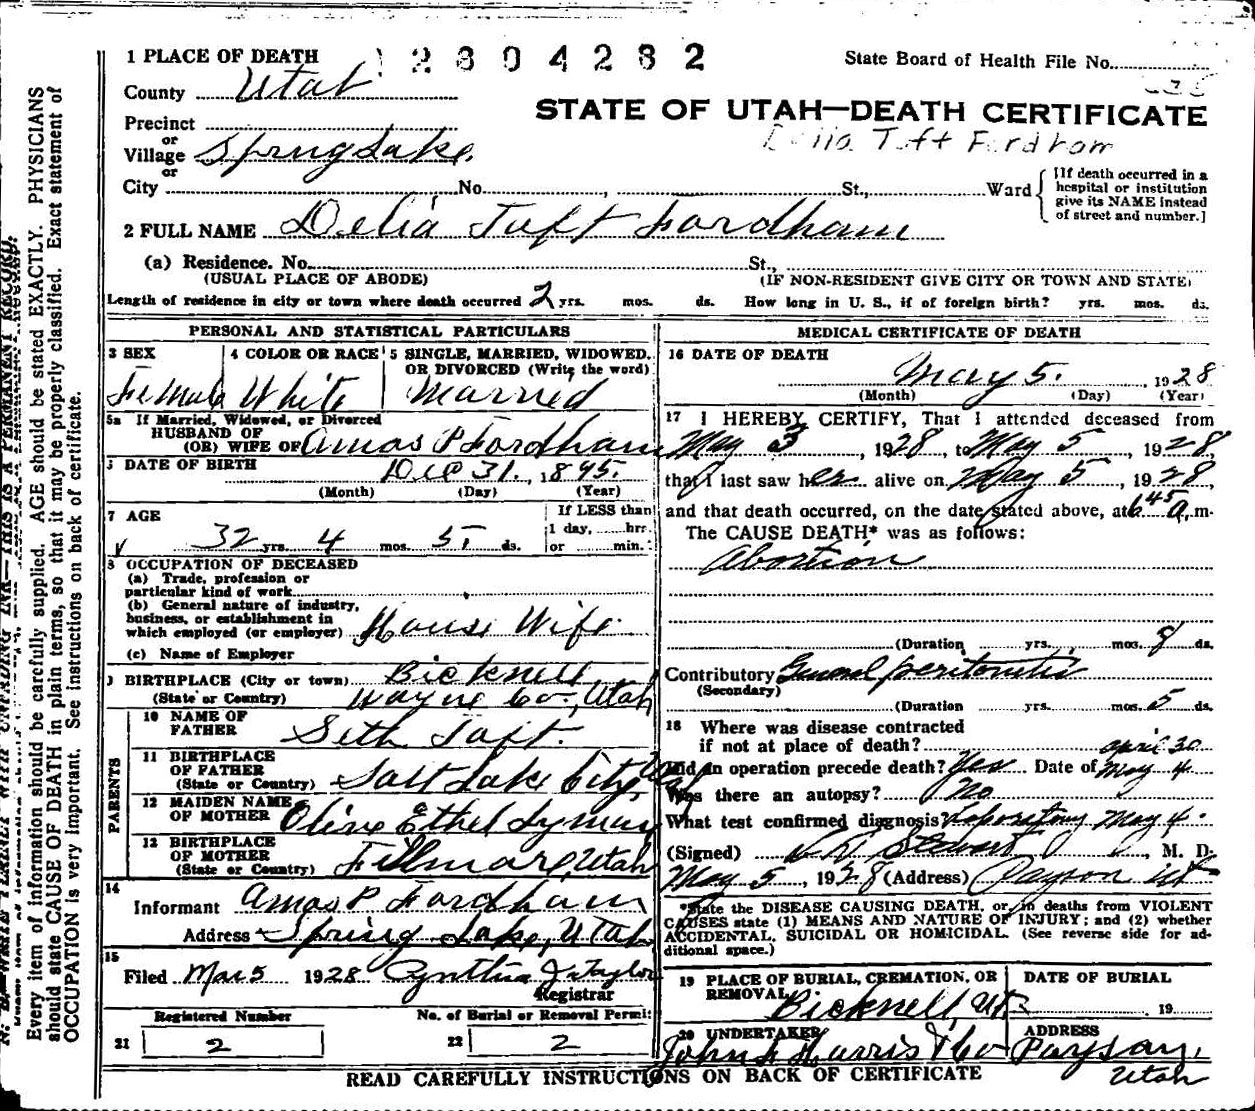 1 PLACE OF DEATH
12804282
State Board of Health File No.
County Utah
STATE OF UTAH—DEATH CERTIFICATE
Precinct
or
Village Spring Lake
Tuft Fordham
or
City No. St., Ward
[If death occurred in a
hospital or institution
give its NAME instead
of street and number.]
2 FULL NAME Delia Tuft Fordham
(a) Residence. No. St.,
(USUAL PLACE OF ABODE) (IF NON-RESIDENT GIVE CITY OR TOWN AND STATE)
Length of residence in city or town where death occurred 2 yrs. mos. ds. How long in U. S., if of foreign birth? yrs. mos. ds.
PERSONAL AND STATISTICAL PARTICULARS
3 SEX 4 COLOR OR RACE 5 SINGLE, MARRIED, WIDOWED,
OR DIVORCED (Write the word)
Female White Married
5a If Married, Widowed, or Divorced
HUSBAND OF
(OR) WIFE OF Amos P Fordham
DATE OF BIRTH Dec 31, 1895.
(Month) (Day) (Year)
7 AGE If LESS than
1 day, hrs.
32 yrs. 4 mos. 5 ds. or min.
8 OCCUPATION OF DECEASED
(a) Trade, profession or
particular kind of work
(b) General nature of industry,
business, or establishment in
which employed (or employer) House Wife
(c) Name of Employer
9 BIRTHPLACE (City or town) Bicknell
(State or Country) Wayne Co., Utah
PARENTS
10 NAME OF
FATHER Seth Taft.
11 BIRTHPLACE
OF FATHER
(State or Country) Salt Lake City,
12 MAIDEN NAME
OF MOTHER Olive Ethel Lyman
13 BIRTHPLACE
OF MOTHER
(State or Country) Fillmore, Utah
14
Informant Amos P Fordham
Address Spring Lake, Utah
15
Filed Mar 5 1928 Cynthia J Taylor
Registrar
Registered Number No. of Burial or Removal Permit
21 2 22 2
MEDICAL CERTIFICATE OF DEATH
16 DATE OF DEATH
May 5. 1928
(Month) (Day) (Year)
17 I HEREBY CERTIFY, That I attended deceased from
May 3, 1928, to May 5, 1928,
that I last saw her alive on May 5, 1928,
and that death occurred, on the date stated above, at 6 45 a.m.
The CAUSE DEATH* was as follows:
Abortion
(Duration yrs. mos. 8 ds.
Contributory General peritonitis
(Secondary)
(Duration yrs. mos. 5 ds.
18 Where was disease contracted
if not at place of death?
april 30
Did an operation precede death? Yes Date of May 4
Was there an autopsy? No
What test confirmed diagnosis May 4.
(Signed) Stewart, M. D.
May 5, 1928 (Address) Payson Ut
*State the DISEASE CAUSING DEATH, or, in deaths from VIOLENT
CAUSES state (1) MEANS AND NATURE OF INJURY; and (2) whether
ACCIDENTAL, SUICIDAL OR HOMICIDAL. (See reverse side for ad-
ditional space.)
19 PLACE OF BURIAL, CREMATION, OR
REMOVAL Bicknell, Ut
DATE OF BURIAL
19
20 UNDERTAKER
ADDRESS
Payson,
Utah
READ CAREFULLY INSTRUCTIONS ON BACK OF CERTIFICATE
Every item of information should be carefully supplied. AGE should be stated EXACTLY. PHYSICIANS
should state CAUSE OF DEATH in plain terms, so that it may be properly classified. Exact statement of
OCCUPATION is very important. See instructions on back of certificate.